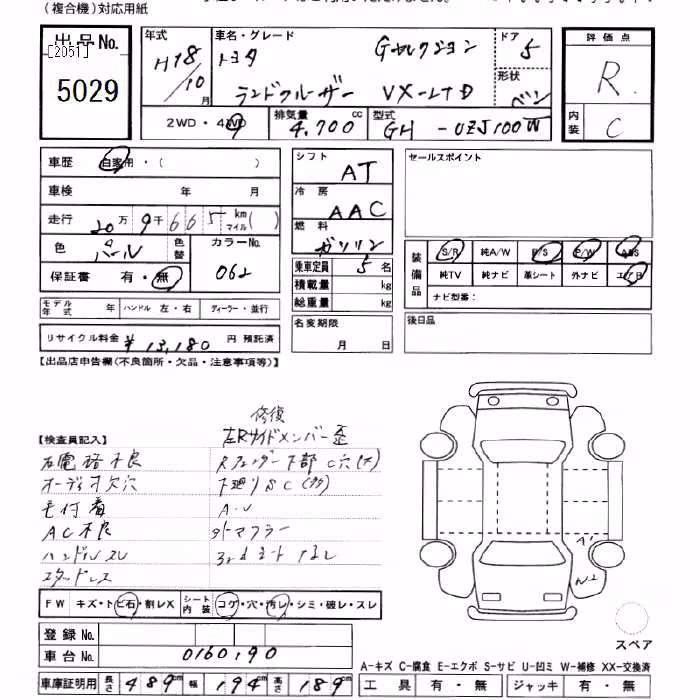 (複合機)対応用紙
出品No.
[2051]
5029
年式
H18/10月
車名・グレード
トヨタ Gセレクション
ランドクルーザー VX-LTD
ドア
5
形状
バン
評価点
R
内装
C
2WD・4WD
排気量
4,700 cc
型式
GH-UZJ100W
車歴 自家用・( )
車検 年 月
走行 20万9千665km マイル( )
色 パール 色替 カラーNo. 062
保証書 有・無
モデル年式 年 ハンドル 左・右 ディーラー・並行
リサイクル料金 ¥13,180円 預託済
シフト AT
冷房 AAC
燃料 ガソリン
乗車定員 5名
積載量 kg
総重量 kg
名変期限 月 日
セールスポイント
装備品
S/R 純A/W P/S P/W ABS
純TV 純ナビ 革シート 外ナビ エアB
ナビ型番:
後日品
【出品店申告欄(不良箇所・欠品・注意事項等)】
【検査員記入】
修復
左Rサイドメンバー歪
オーディオ欠穴
AC不良
ハンドルスレ
スタッドレス
Rフェンダー下部C穴(大)
下廻りSC(多)
外マフラー
3rdシートなし
A1
W2
FW キズ・トビ石・割レX シート内装 コゲ・穴・汚レ・シミ・破レ・スレ
登録No.
車台No. 0160190
車庫証明用 長さ 489cm 幅 194cm 高さ 189cm
スペア
A-キズ C-腐食 E-エクボ S-サビ U-凹ミ W-補修 XX-交換済
工具 有・無 ジャッキ 有・無